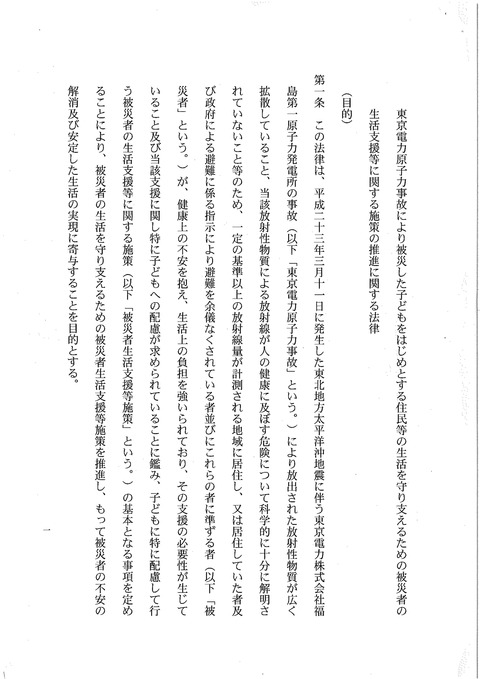 東京電力原子力事故により被災した子どもをはじめとする住民等の生活を守り支えるための被災者の
生活支援等に関する施策の推進に関する法律
（目的）
第一条　この法律は、平成二十三年三月十一日に発生した東北地方太平洋沖地震に伴う東京電力株式会社福
島第一原子力発電所の事故（以下「東京電力原子力事故」という。）により放出された放射性物質が広く
拡散していること、当該放射性物質による放射線が人の健康に及ぼす危険について科学的に十分に解明さ
れていないこと等のため、一定の基準以上の放射線量が計測される地域に居住し、又は居住していた者及
び政府による避難に係る指示により避難を余儀なくされている者並びにこれらの者に準ずる者（以下「被
災者」という。）が、健康上の不安を抱え、生活上の負担を強いられており、その支援の必要性が生じて
いること及び当該支援に関し特に子どもへの配慮が求められていることに鑑み、子どもに特に配慮して行
う被災者の生活支援等に関する施策（以下「被災者生活支援等施策」という。）の基本となる事項を定め
ることにより、被災者の生活を守り支えるための被災者生活支援等施策を推進し、もって被災者の不安の
解消及び安定した生活の実現に寄与することを目的とする。
一